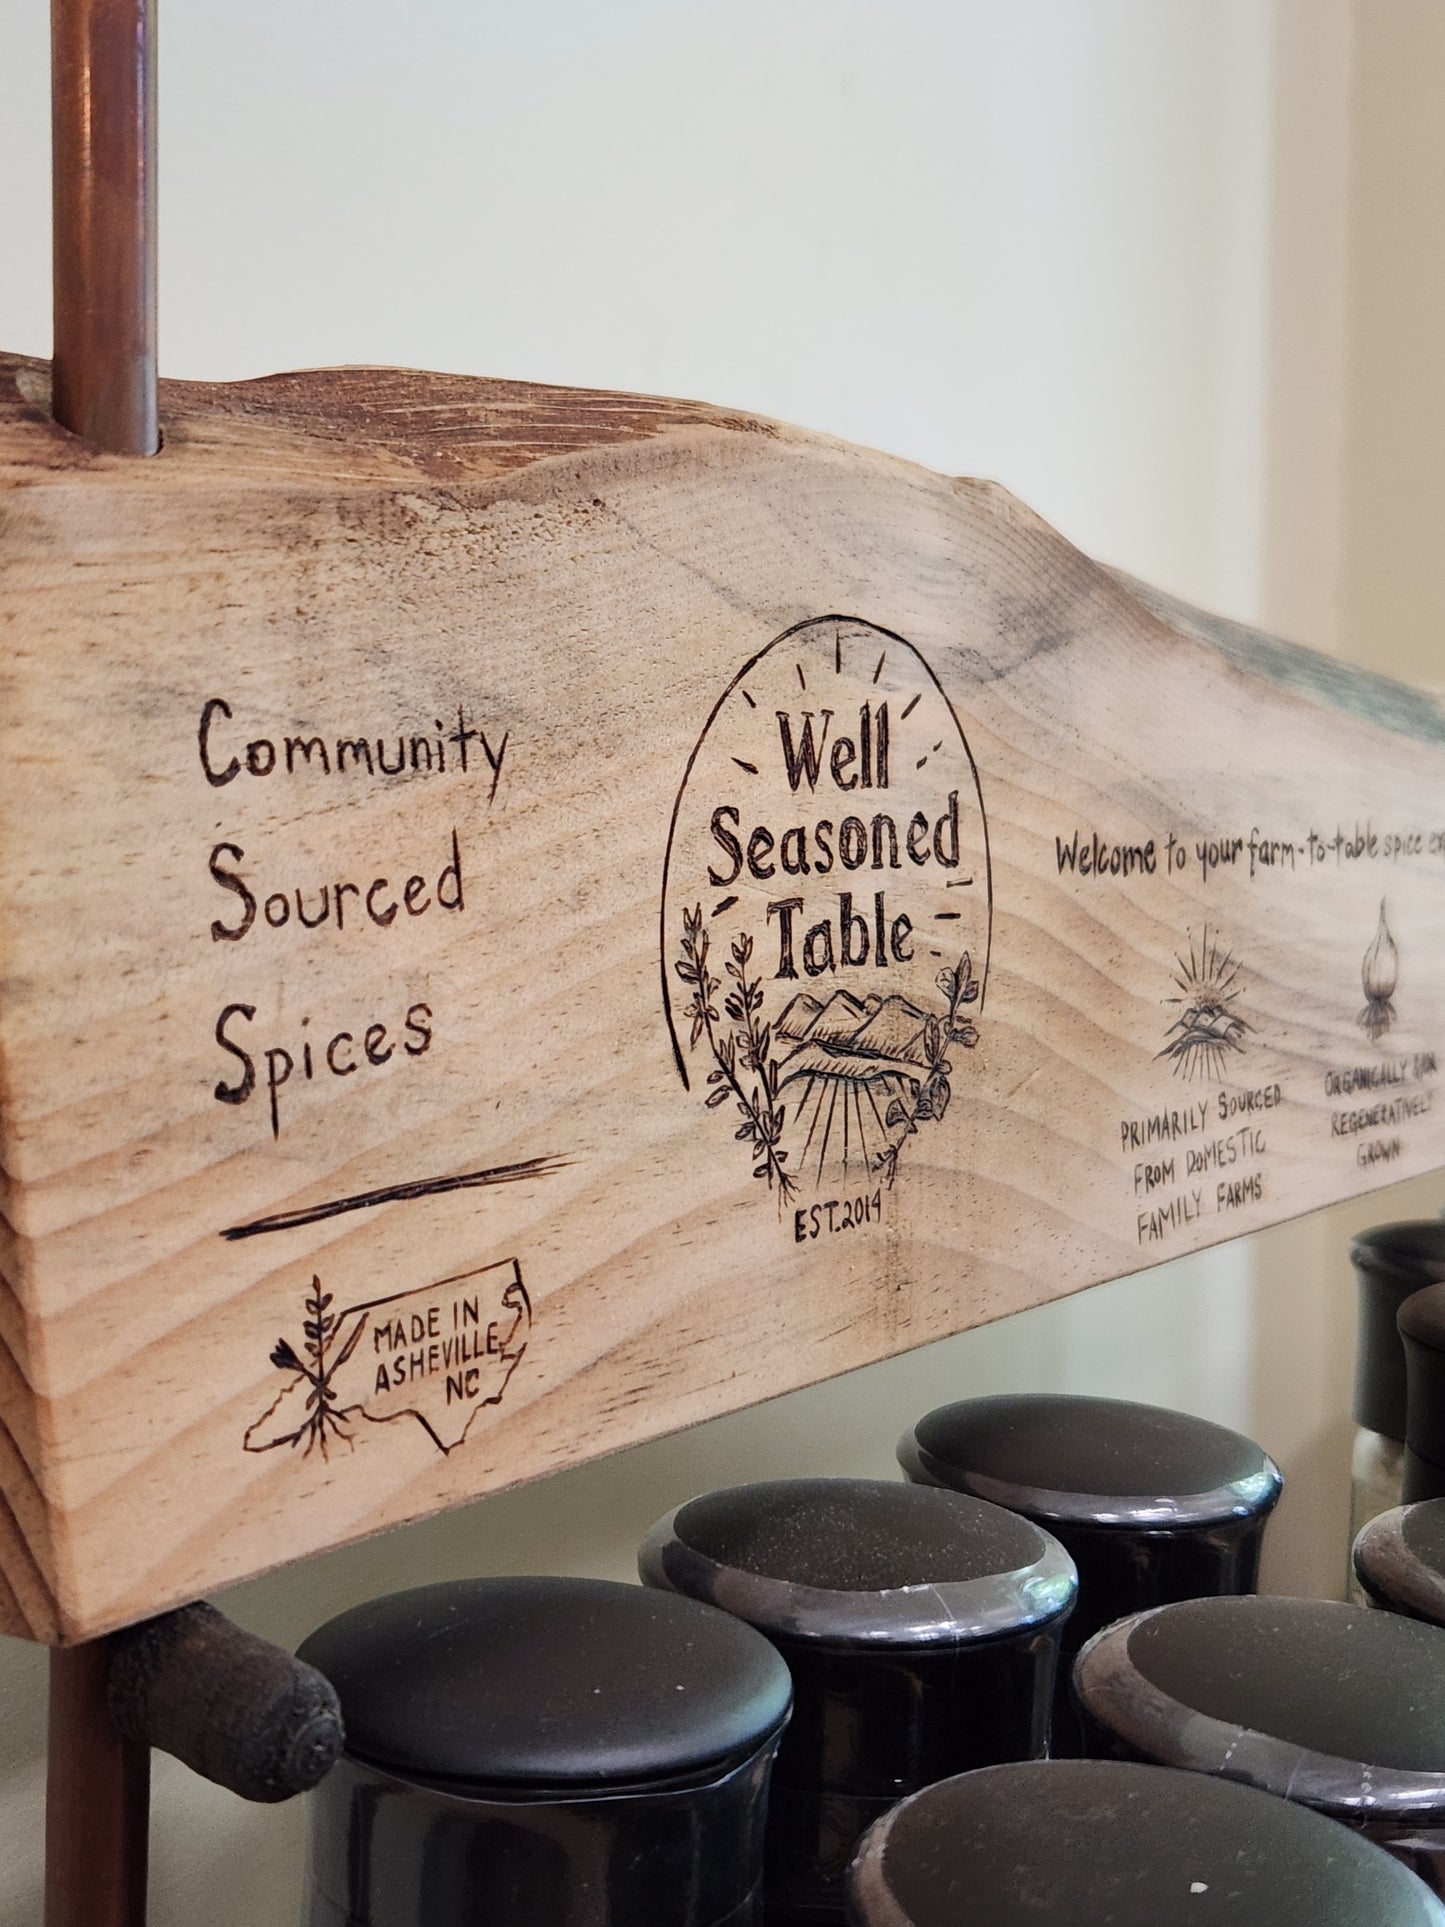 Community
Sourced
Spices
MADE IN
ASHEVILLE,
NC
Well
Seasoned
Table
EST.2014
Welcome to your farm-to-table spice
PRIMARILY SOURCED
FROM DOMESTIC
FAMILY FARMS
ORGANICALLY
REGENERATIVELY
GROWN